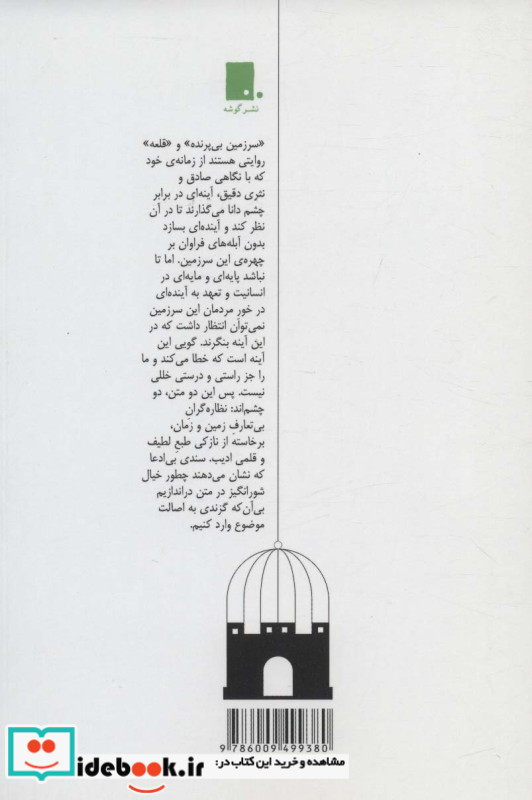 نشر گوشه
«سرزمین بی‌پرنده» و «قلعه»
روایتی هستند از زمانه‌ی خود
که با نگاهی صادق و
نثری دقیق، آینه‌ای در برابر
چشم دانا می‌گذارند تا در آن
نظر کند و آینده‌ای بسازد
بدون آبله‌های فراوان بر
چهره‌ی این سرزمین. اما تا
نباشد پایه‌ای و مایه‌ای در
انسانیت و تعهد به آینده‌ای
در خور مردمان این سرزمین
نمی‌توان انتظار داشت که در
این آینه بنگرند. گویی این
آینه است که خطا می‌کند و ما
را جز راستی و درستی خللی
نیست. پس این دو متن، دو
چشم‌اند: نظاره‌گرانِ
بی‌تعارفِ زمین و زمان،
برخاسته از نازکی طبعِ لطیف
و قلمی ادیب. سندی بی‌ادعا
که نشان می‌دهند چطور خیال
شورانگیز در متن دراندازیم
بی‌آن‌که گزندی به اصالت
موضوع وارد کنیم.
9 786009 499380
مشاهده و خرید این کتاب در:
idebook.ir